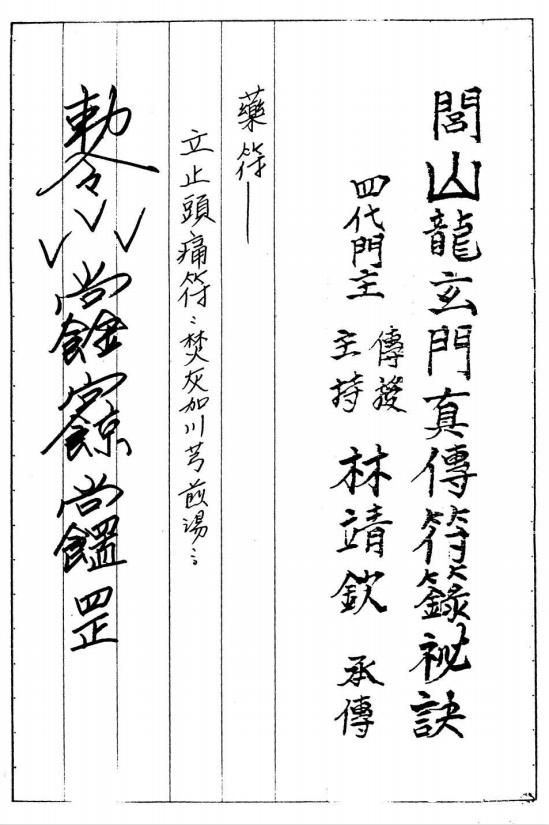 閭山龍玄門真傳符籙祕訣
四代門主
傳授
主持
林靖欽 承傳
藥符
立止頭痛符:焚灰加川芎煎湯:
敕令
罡